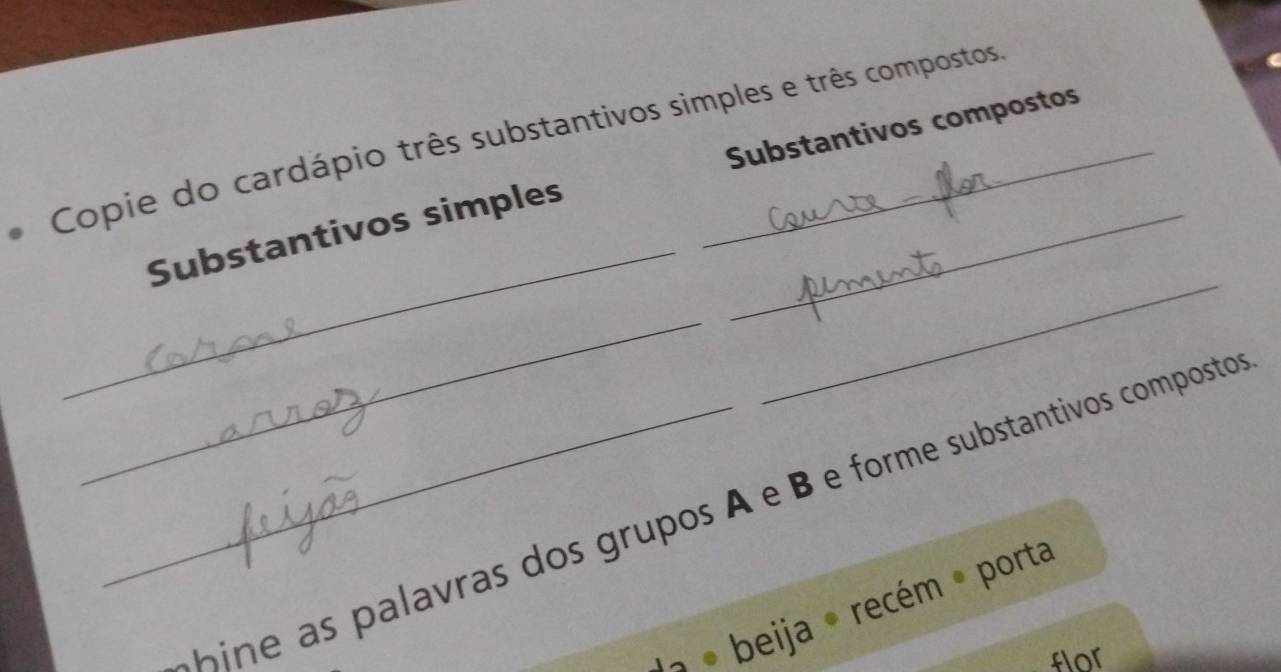 • Copie do cardápio três substantivos simples e três compostos.
Substantivos simples
Substantivos compostos
carne
couve-flor
arroz
pimento
feijão
mbine as palavras dos grupos A e B e forme substantivos compostos.
da • beija • recém • porta
flor